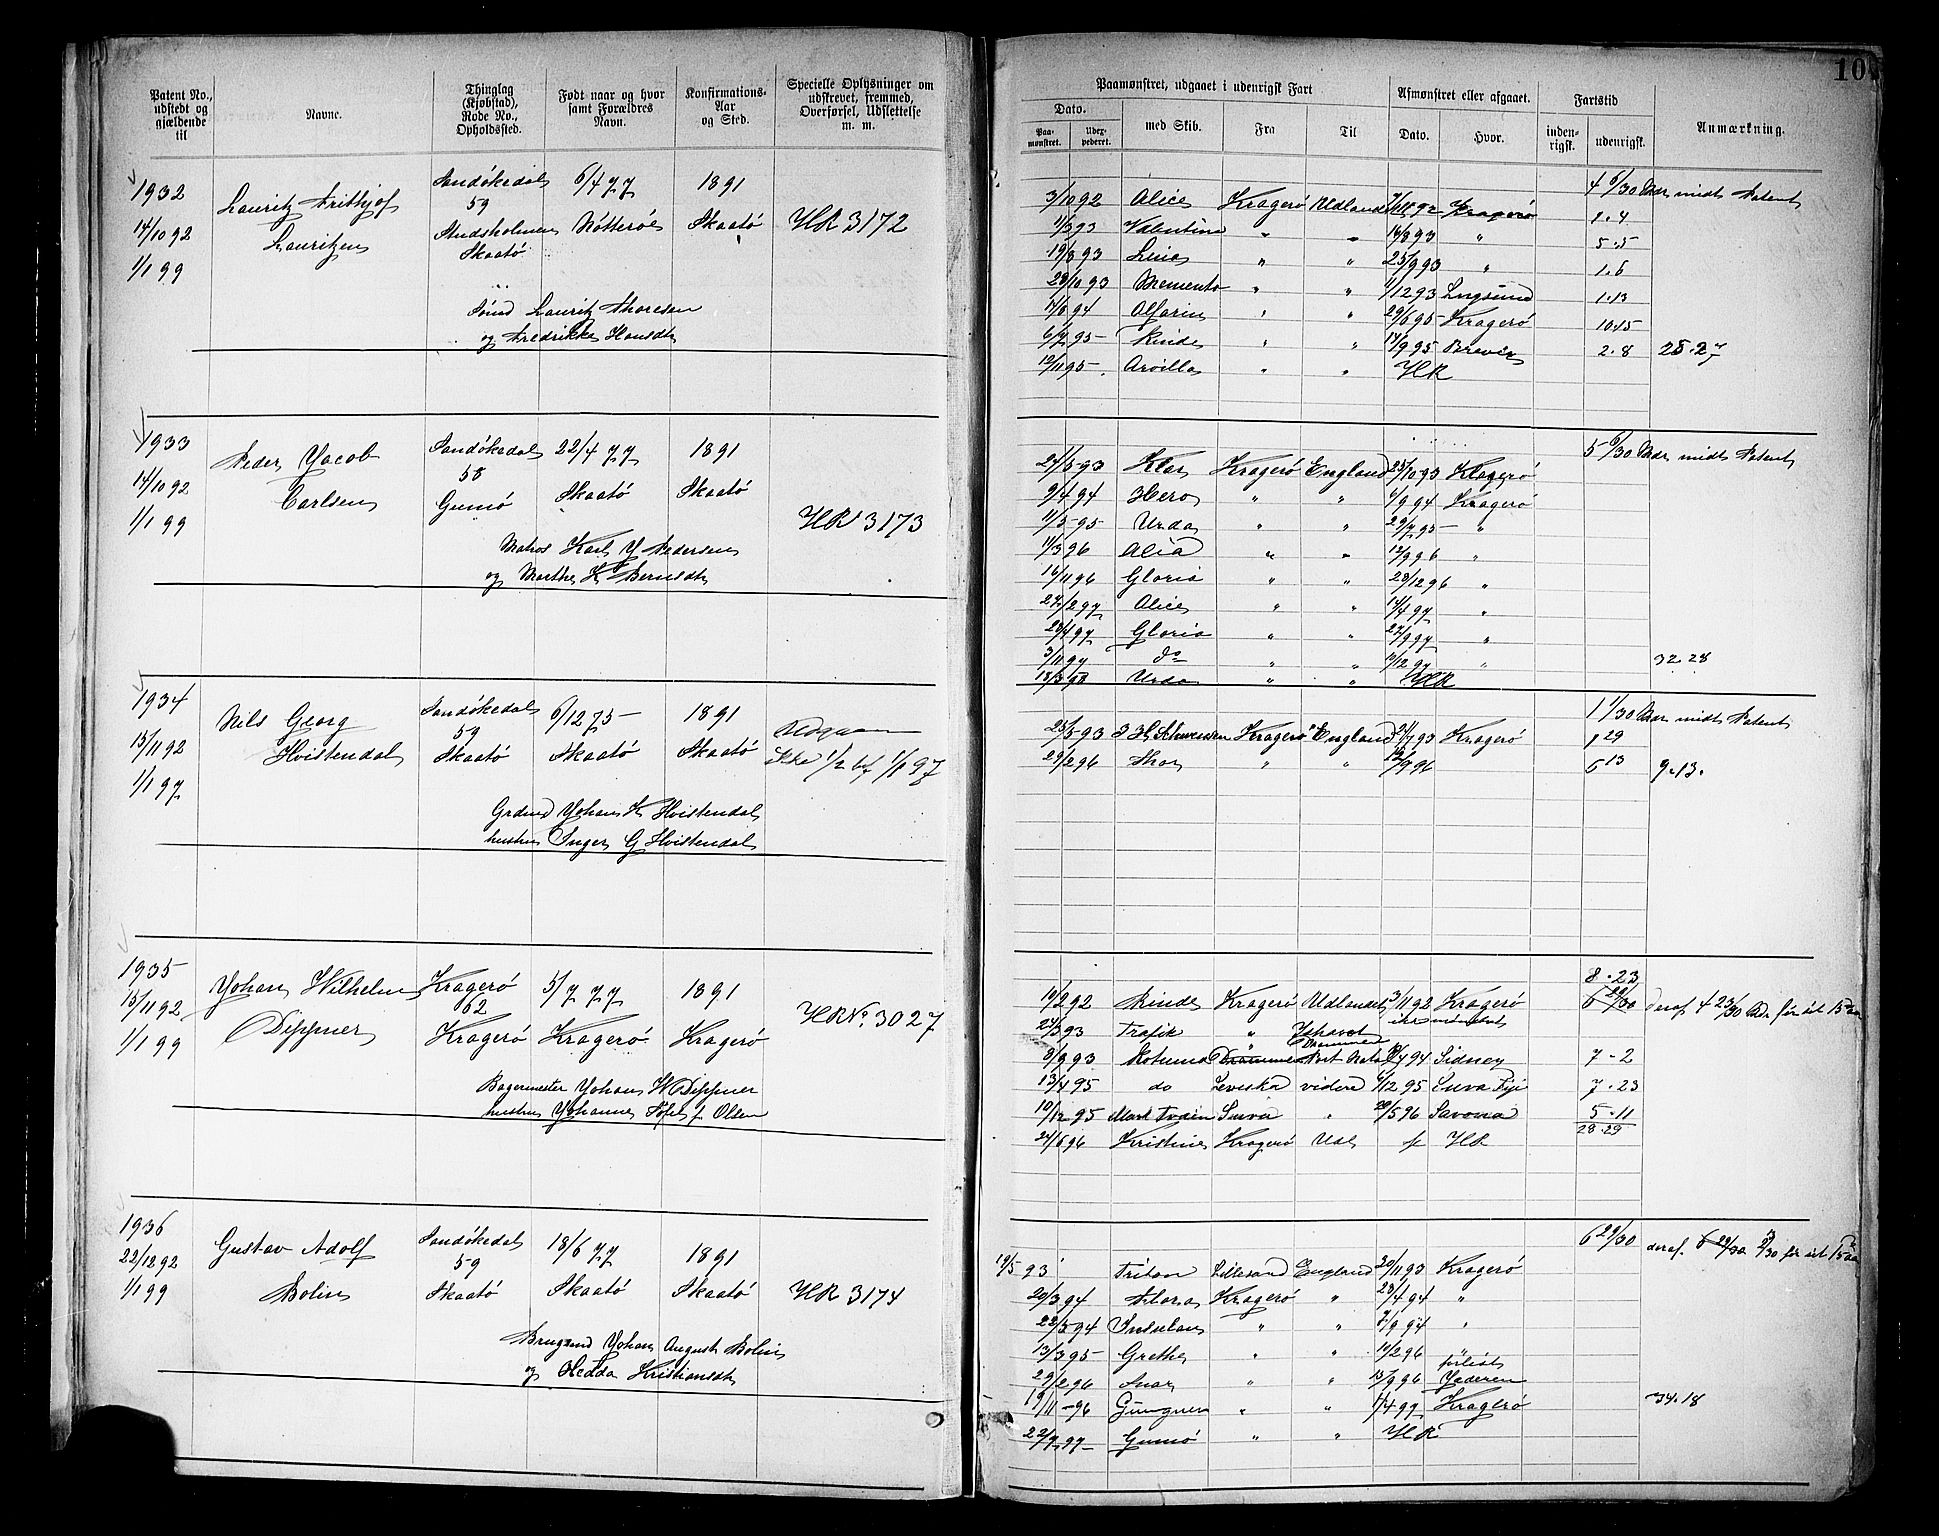 10
Patent No., udstedt og gjældende til
Navne.
Thinglag (Kjøbstad), Rode No., Opholdssted.
Født naar og hvor samt Forældres Navn.
Konfirmations-Aar og Sted.
Specielle Oplysninger om udskrevet, fremmed, Overførsel, Udslettelse m. m.
Paamønstret, udgaaet i udenrigsk Fart
Afmønstret eller afgaaet.
Fartstid
Dato.
Paamønstret.
Udexpederet.
med Skib.
Fra
Til
Dato.
Hvor.
indenrigsk.
udenrigsk.
Anmærkning.
1932 Lauritz Frithjof Sandökedal 6/4 77 1891
14/10 92 Lauritzen 59 Nötterö Skaatö HR 3172
1/1 99 Studsholmen
Skaatö
Lauritz Thoresen
og Fredrikke Hansdtr
4 6/30 Mdr midt Patent
3/10 92 Alice Kragerö Udlandet Kragerö 1.4
11/3 93 Valentine " " 14/8 93 " 5.5
19/8 93 " " 25/9 93 " 1.6
28/10 93 Memento " " 1/12 93 1.13
" " 29/6 95 Kragerö 10.15
6/7 95 Rinde " " 14/9 95 Brevik 2.8 25.27
12/11 95 Arvilla " " HR
1933 Peder Jacob Sandökedal 22/4 77 1891
14/10 92 Carlsen 58 Skaatö Skaatö
1/1 99 Gumö HR 3173
Matros Karl J Pedersen
og Marthe K Berntsdtr
5 6/30 Mdr midt Patent
Klar Kragerö England 25/10 93 Kragerö
9/4 94 Hero " " 1/9 94 Kragerö
11/3 95 Urda " " 29/7 95 "
11/3 96 Alice " " 12/9 96 "
16/11 96 Gloria " " 28/12 96 "
27/2 97 Alice " " 14/4 97 "
28/4 97 Gloria " " 27/9 97 "
3/11 97 do " " 10/12 97 " 32.28
18/3 98 Urda " " HR
1934 Nils Georg Sandökedal 6/12 75 1891
15/11 92 Hvistendal 59 Skaatö Skaatö
1/1 97 Skaatö 1/1 97
Grdmd Johan K Hvistendal
hustru Inger G Hvistendal
1 1/30 Mdr midt Patent
25/5 93 Kragerö England 93 Kragerö 1 29
29/2 96 Thor " " 96 6 13 9.13.
1935 Johan Wilhelm Kragerö 5/7 77 1891
15/11 92 Dippner 62 Kragerö Kragerö HR No. 3027
1/1 99 Kragerö
Bagermester Johan W Dippner
hustru Johanne f. Olsen
8.23
10/2 92 Rinde Kragerö Udlandet 3/11 92 Kragerö 6 22/30 deraf 4 23/30 Mdr för fylt 15 Aar
24/3 93 Trafik "
8/9 93 Drammen Port Natal 94 Sidney 7-2
13/4 95 do Levuka videre 1/12 95 Suva Fiji 7-23
10/12 95 Mark Twain Suva " 20/5 96 Savona 5-11
28.29
24/6 96 Kristine Kragerö Udl HR
1936 Gustav Adolf Sandökedal 18/6 77 1891
22/12 92 Bolin 59 Skaatö Skaatö HR 3174
1/1 99 Skaatö
Johan August Bolin
og Hedda Kristiansdtr
6 29/30 deraf
19/5 93 Triton Lillesand England 20/11 93 Kragerö
20/3 94 Flora Kragerö " 23/4 94 "
22/5 94 " " 9/9 94 "
13/3 95 Grethe " " 10/2 96 "
29/2 96 " " 15/9 96 forlist Jæderen
19/11 96 Gungner " " 1/4 97 Kragerö 34.18
22/7 97 Gumö " " HR